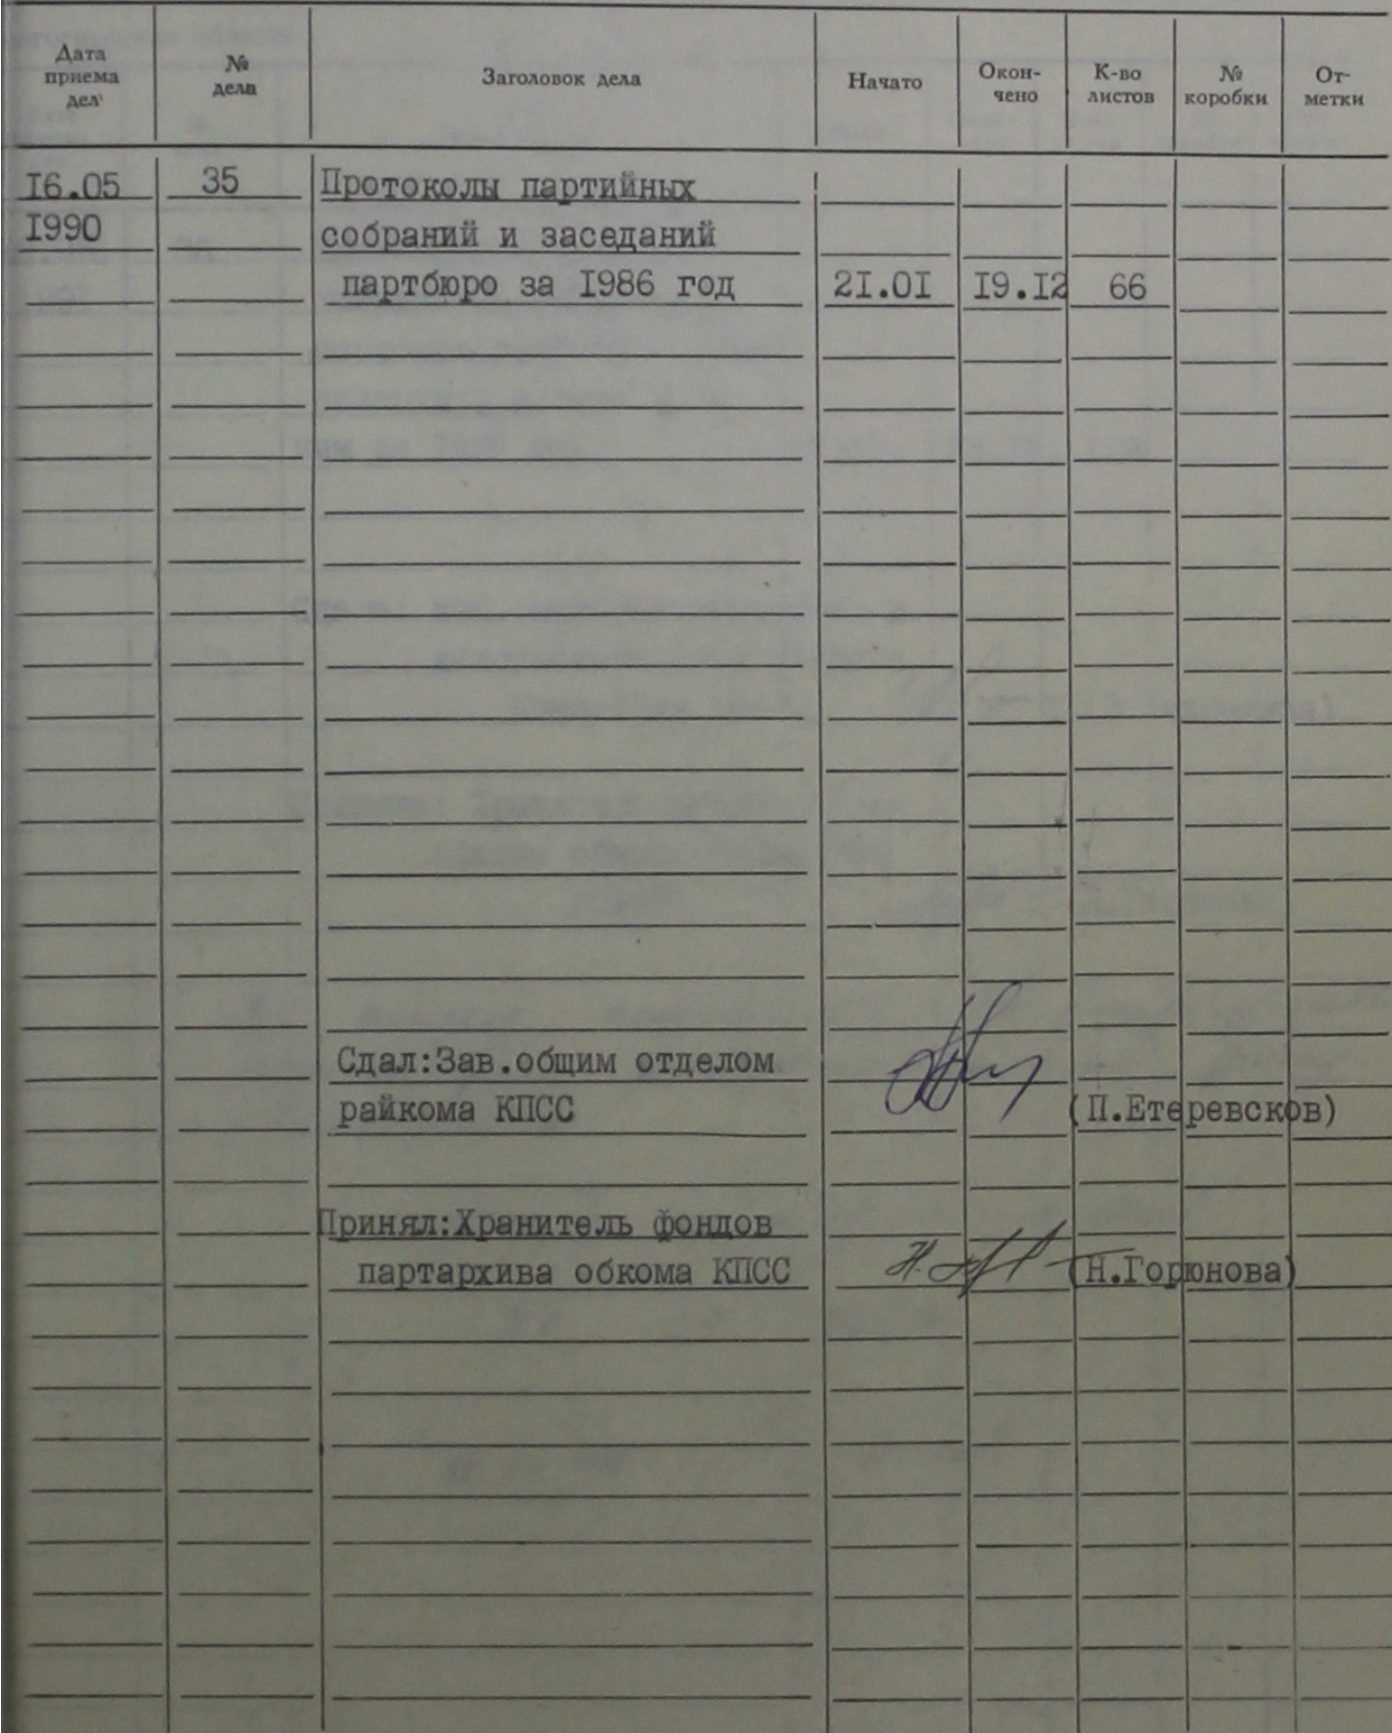 Дата приема дел № дела Заголовок дела Начато Окончено К-во листов № коробки Отметки
16.05 35 Протоколы партийных
1990 собраний и заседаний
партбюро за 1986 год 21.01 19.12 66
Сдал:Зав.общим отделом
райкома КПСС (П.Етеревсков)
Принял:Хранитель фондов
партархива обкома КПСС (Н.Горюнова)